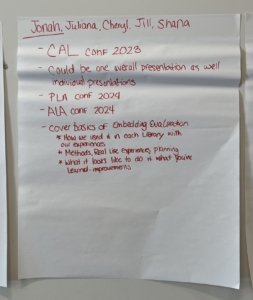 Jonah, Juliana, Cheryl, Jill, Shana
- CAL conf 2023
- Could be one overall presentation as well
individual presentations
- PLA conf 2024
- ALA conf 2024
- cover basics of Embedding Evaluation
* How we used it in each Library with
our experiences
* Methods, Real life experiences, planning
* What it looks like to do it what you've
learned - improvements